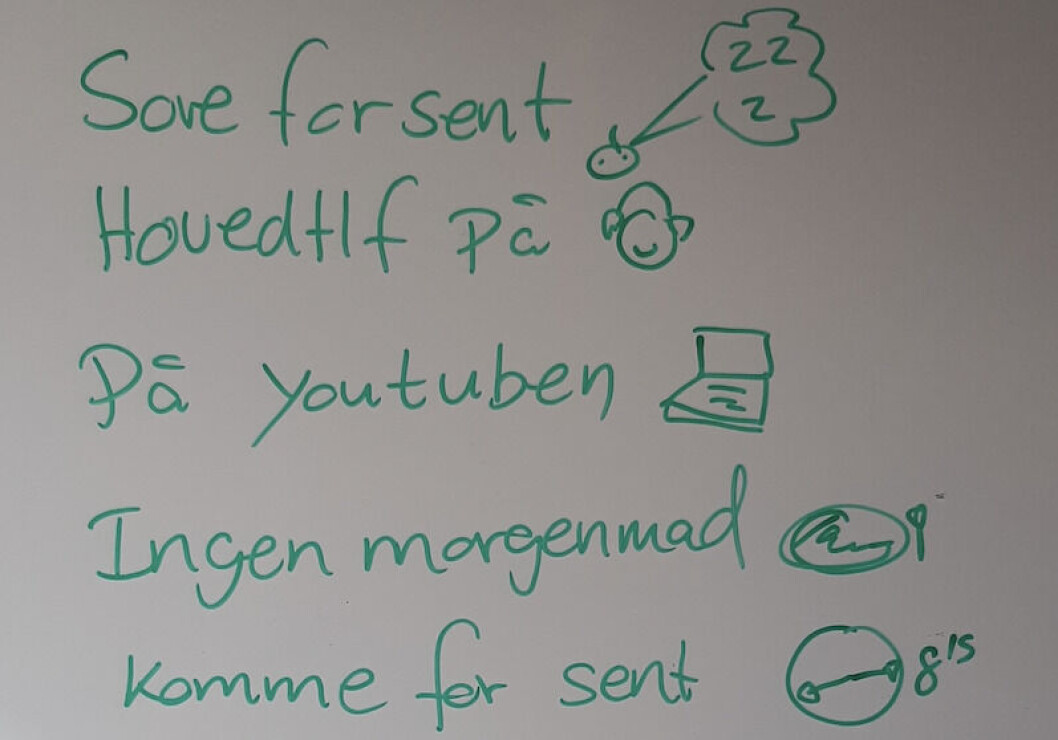 Sove for sent zz z
Hovedtlf på
På youtuben
Ingen morgenmad
Komme før sent 8¹⁵